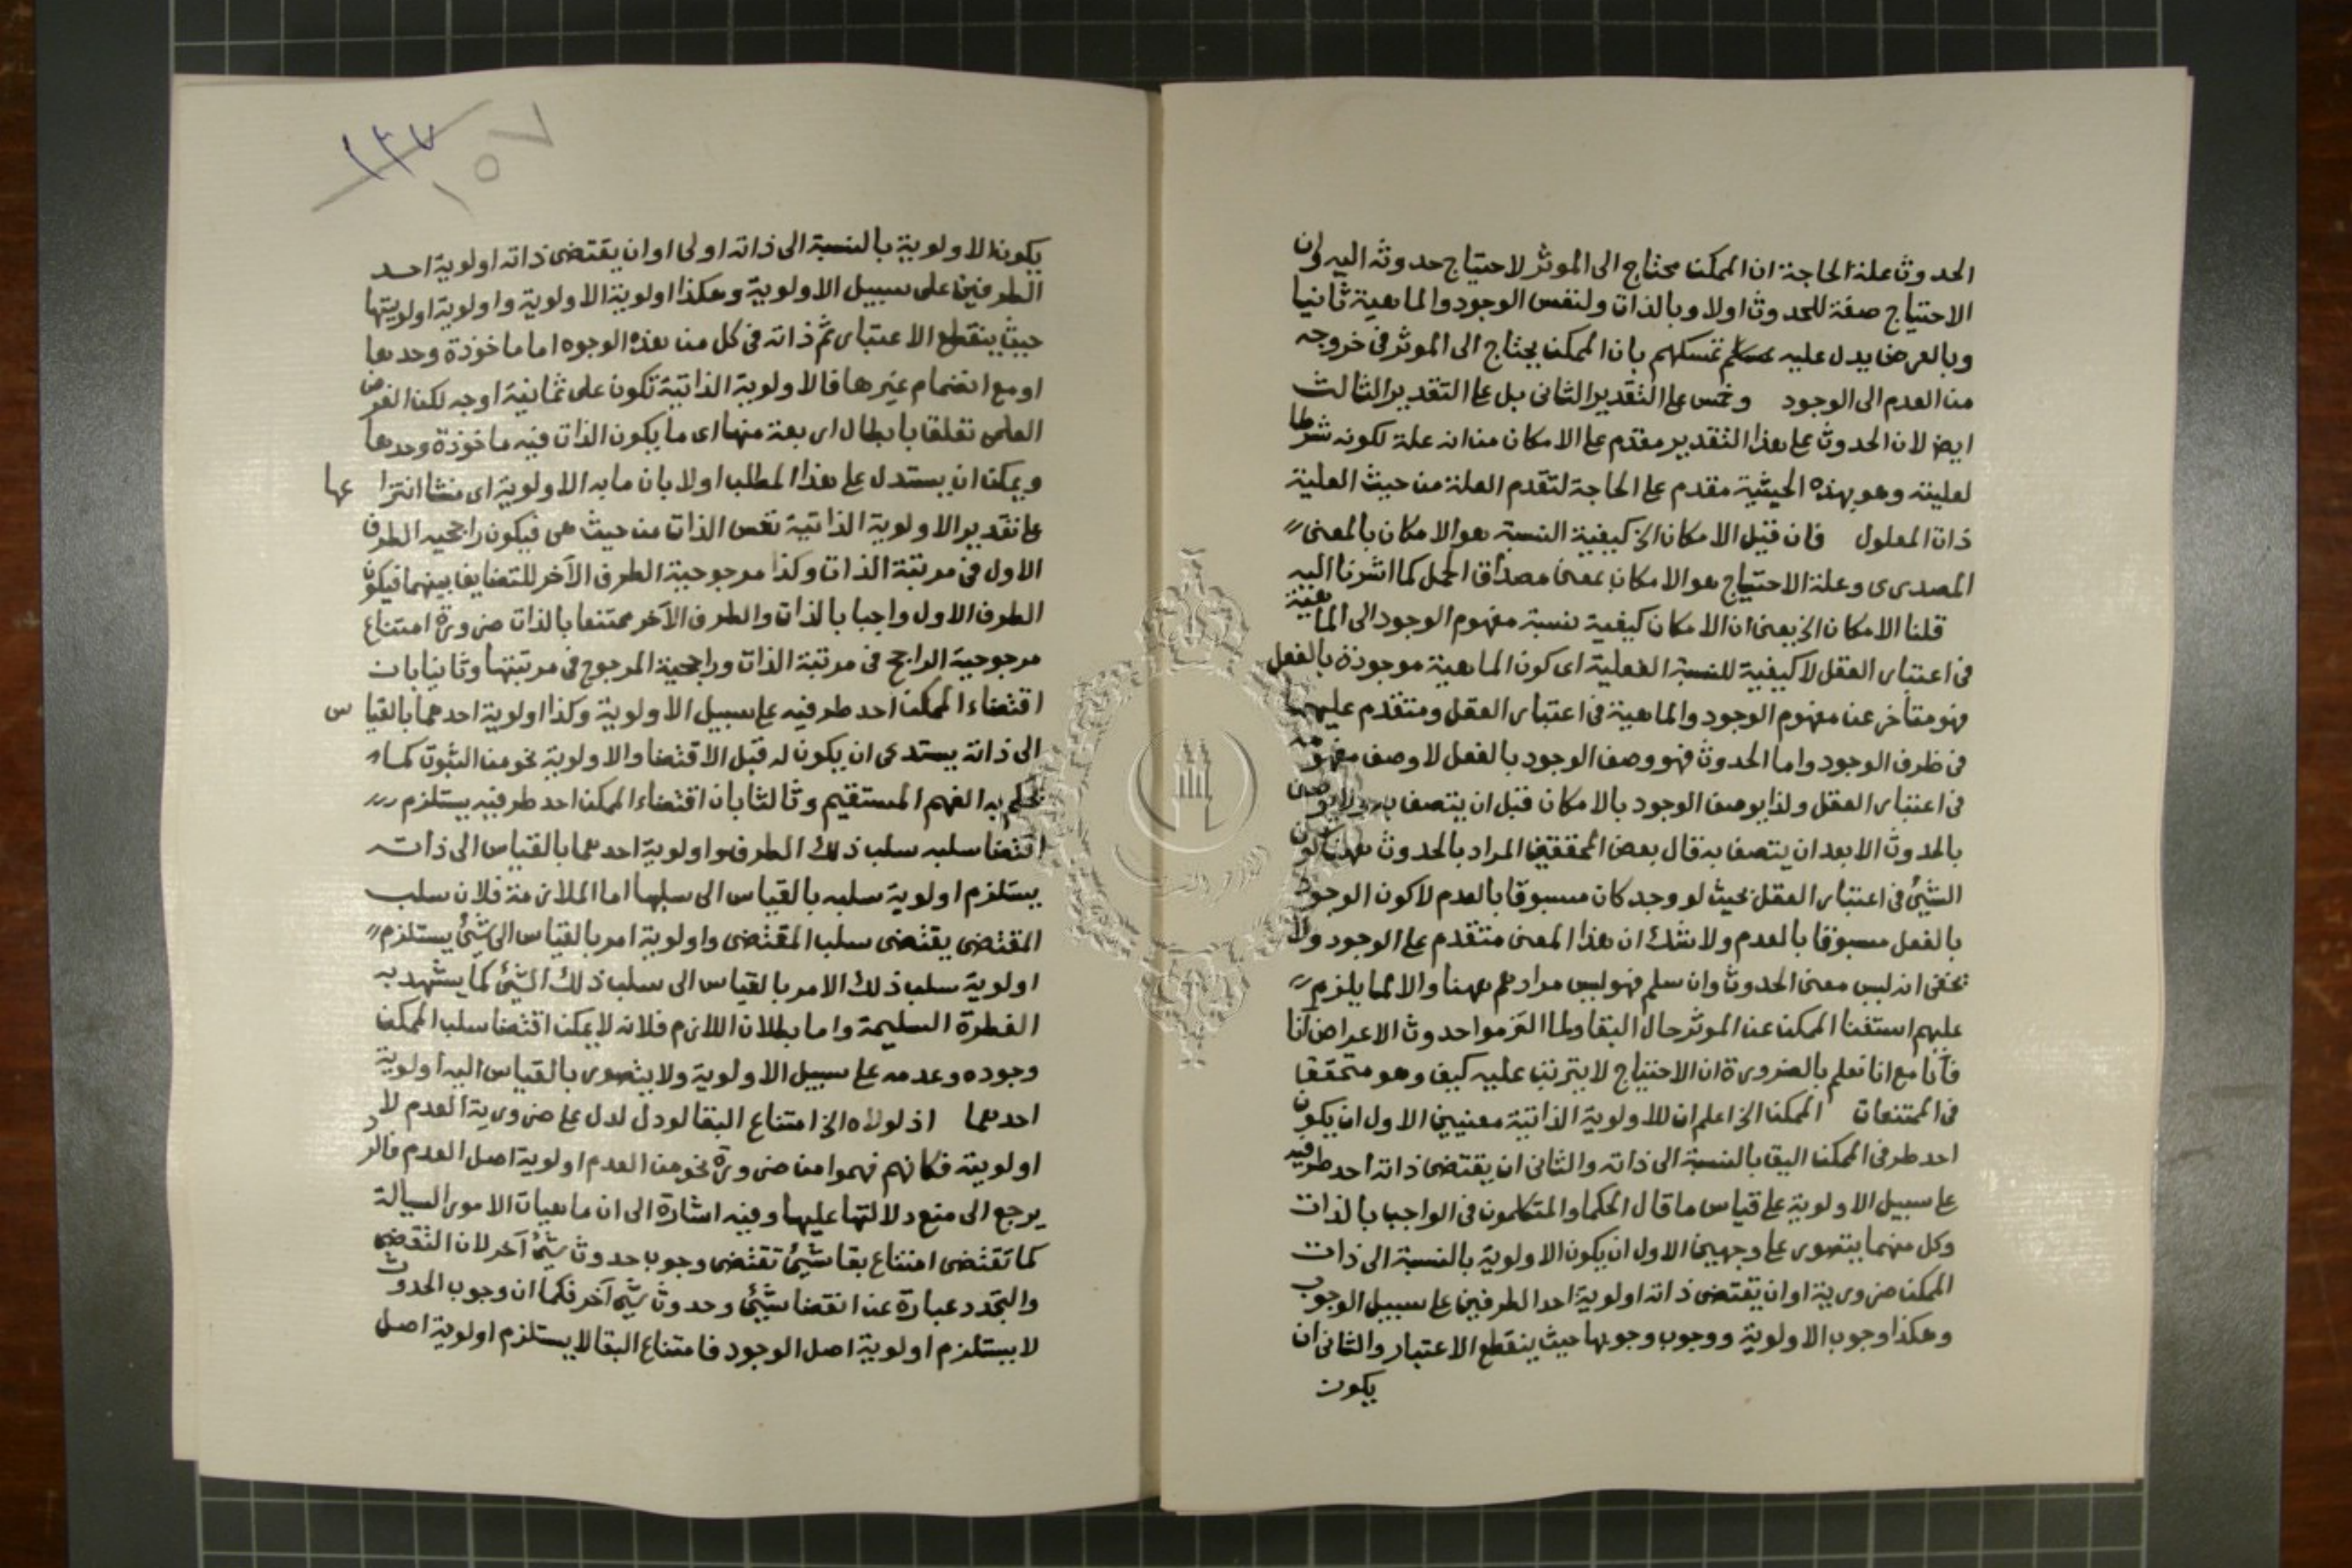 الحدوث علة الحاجة ان الممكن محتاج الى الموثر لاحتياج حدوثه اليه وان
الاحتياج صفة للحدوث اولا وبالذات ولنفس الوجود والماهية ثانيا
وبالعرض يدل عليه تمسكهم بان الممكن يحتاج الى الموثر فى خروجه
من العدم الى الوجود وقس على التقدير الثانى بل على التقدير الثالث
ايض لان الحدوث على هذا التقدير مقدم على الامكان من انه علة لكونه شرطا
لعليته وهو بهذه الحيثية مقدم على الحاجة لتقدم العلة من حيث العلية
ذات المعلول فان قيل الامكان الخ كيفية النسبة هو الامكان بالمعنى
المصدرى وعلة الاحتياج هو الامكان بمعنى مصداق الحمل كما اشرنا اليه
قلنا الامكان الخ يعنى ان الامكان كيفية نسبة مفهوم الوجود الى الماهية
فى اعتبار العقل لا كيفية للنسبة الفعلية اى كون الماهية موجودة بالفعل
فهو متأخر عن مفهوم الوجود والماهية فى اعتبار العقل ومتقدم عليهما
فى ظرف الوجود واما الحدوث فهو وصف الوجود بالفعل لا وصف مفهومه
فى اعتبار العقل ولذا يوصف الوجود بالامكان قبل ان يتصف به ولا يوصف
بالحدوث الا بعد ان يتصف به قال بعض المحققين المراد بالحدوث ههنا كون
الشئ فى اعتبار العقل بحيث لو وجد كان مسبوقا بالعدم لا كون الوجود
بالفعل مسبوقا بالعدم ولا شك ان هذا المعنى متقدم على الوجود ولا
يخفى انه ليس معنى الحدوث وان سلم فهو ليس مرادهم ههنا والا لما يلزم
عليهم استغنا الممكن عن الموثر حال البقا ولما التزموا حدوث الاعراض آنا
فآنا مع انا نعلم بالضرورة ان الاحتياج لا يترتب عليه كيف وهو متحقق
فى الممتنعات الممكن الخ اعلم ان للاولوية الذاتية معنيين الاول ان يكون
احد طرفى الممكن اليق بالنسبة الى ذاته والثانى ان يقتضى ذاته احد طرفيه
على سبيل الاولوية على قياس ما قال الحكما والمتكلمون فى الواجب بالذات
وكل منهما يتصور على وجهين الاول ان يكون الاولوية بالنسبة الى ذات
الممكن ضرورية او ان يقتضى ذاته اولوية احد الطرفين على سبيل الوجوب
وهكذا وجوب الاولوية ووجوب وجوبها حيث ينقطع الاعتبار والثانى ان
يكون
١٣٧
١٥٧
يكون الاولوية بالنسبة الى ذاته اولى او ان يقتضى ذاته اولوية احد
الطرفين على سبيل الاولوية وهكذا اولوية الاولوية واولوية اولويتها
حيث ينقطع الاعتبار ثم ذاته فى كل من هذه الوجوه اما ماخوذة وحدها
او مع انضمام غيرها فالاولوية الذاتية تكون على ثمانية اوجه لكن الغرض
العلمى تعلق بابطال اربعة منها اى ما يكون الذات فيه ماخوذة وحدها
ويمكن ان يستدل على هذا المطلب اولا بان ما به الاولوية اى منشا انتزاعها
على تقدير الاولوية الذاتية نفس الذات من حيث هى فيكون راجحيه الطرف
الاول فى مرتبة الذات وكذا مرجوحية الطرف الآخر للتضايف بينهما فيكون
الطرف الاول واجبا بالذات والطرف الآخر ممتنعا بالذات ضرورة امتناع
مرجوحية الراجح فى مرتبة الذات وراجحية المرجوح فى مرتبتها وثانيا بان
اقتضاء الممكن احد طرفيه على سبيل الاولوية وكذا اولوية احدهما بالقياس
الى ذاته يستدعى ان يكون له قبل الاقتضا والاولوية نحو من الثبوت كما
يحكم به الفهم المستقيم وثالثا بان اقتضاء الممكن احد طرفيه يستلزم
اقتضا سلبه سلب ذلك الطرف واولوية احدهما بالقياس الى ذاته
يستلزم اولوية سلبه بالقياس الى سلبها اما الملازمة فلان سلب
المقتضى يقتضى سلب المقتضى واولوية امر بالقياس الى شئ يستلزم
اولوية سلب ذلك الامر بالقياس الى سلب ذلك الشئ كما يشهد به
الفطرة السليمة واما بطلان اللازم فلانه لا يمكن اقتضا سلب الممكن
وجوده وعدمه على سبيل الاولوية ولا يتصور بالقياس اليه اولوية
احدهما اذ لولاه الخ امتناع البقا لو دل لدل على ضرورية العدم لا
اولويته فكانهم فهموا من ضرورة نحو من العدم اولوية اصل العدم فالرد
يرجع الى منع دلالتها عليها وفيه اشارة الى ان ماهيات الامور السيالة
كما تقتضى امتناع بقا شئ تقتضى وجوب حدوث شئ آخر لان التقضى
والتجدد عبارة عن انقضا شئ وحدوث شئ آخر فكما ان وجوب الحدوث
لا يستلزم اولوية اصل الوجود فامتناع البقا لا يستلزم اولوية اصل